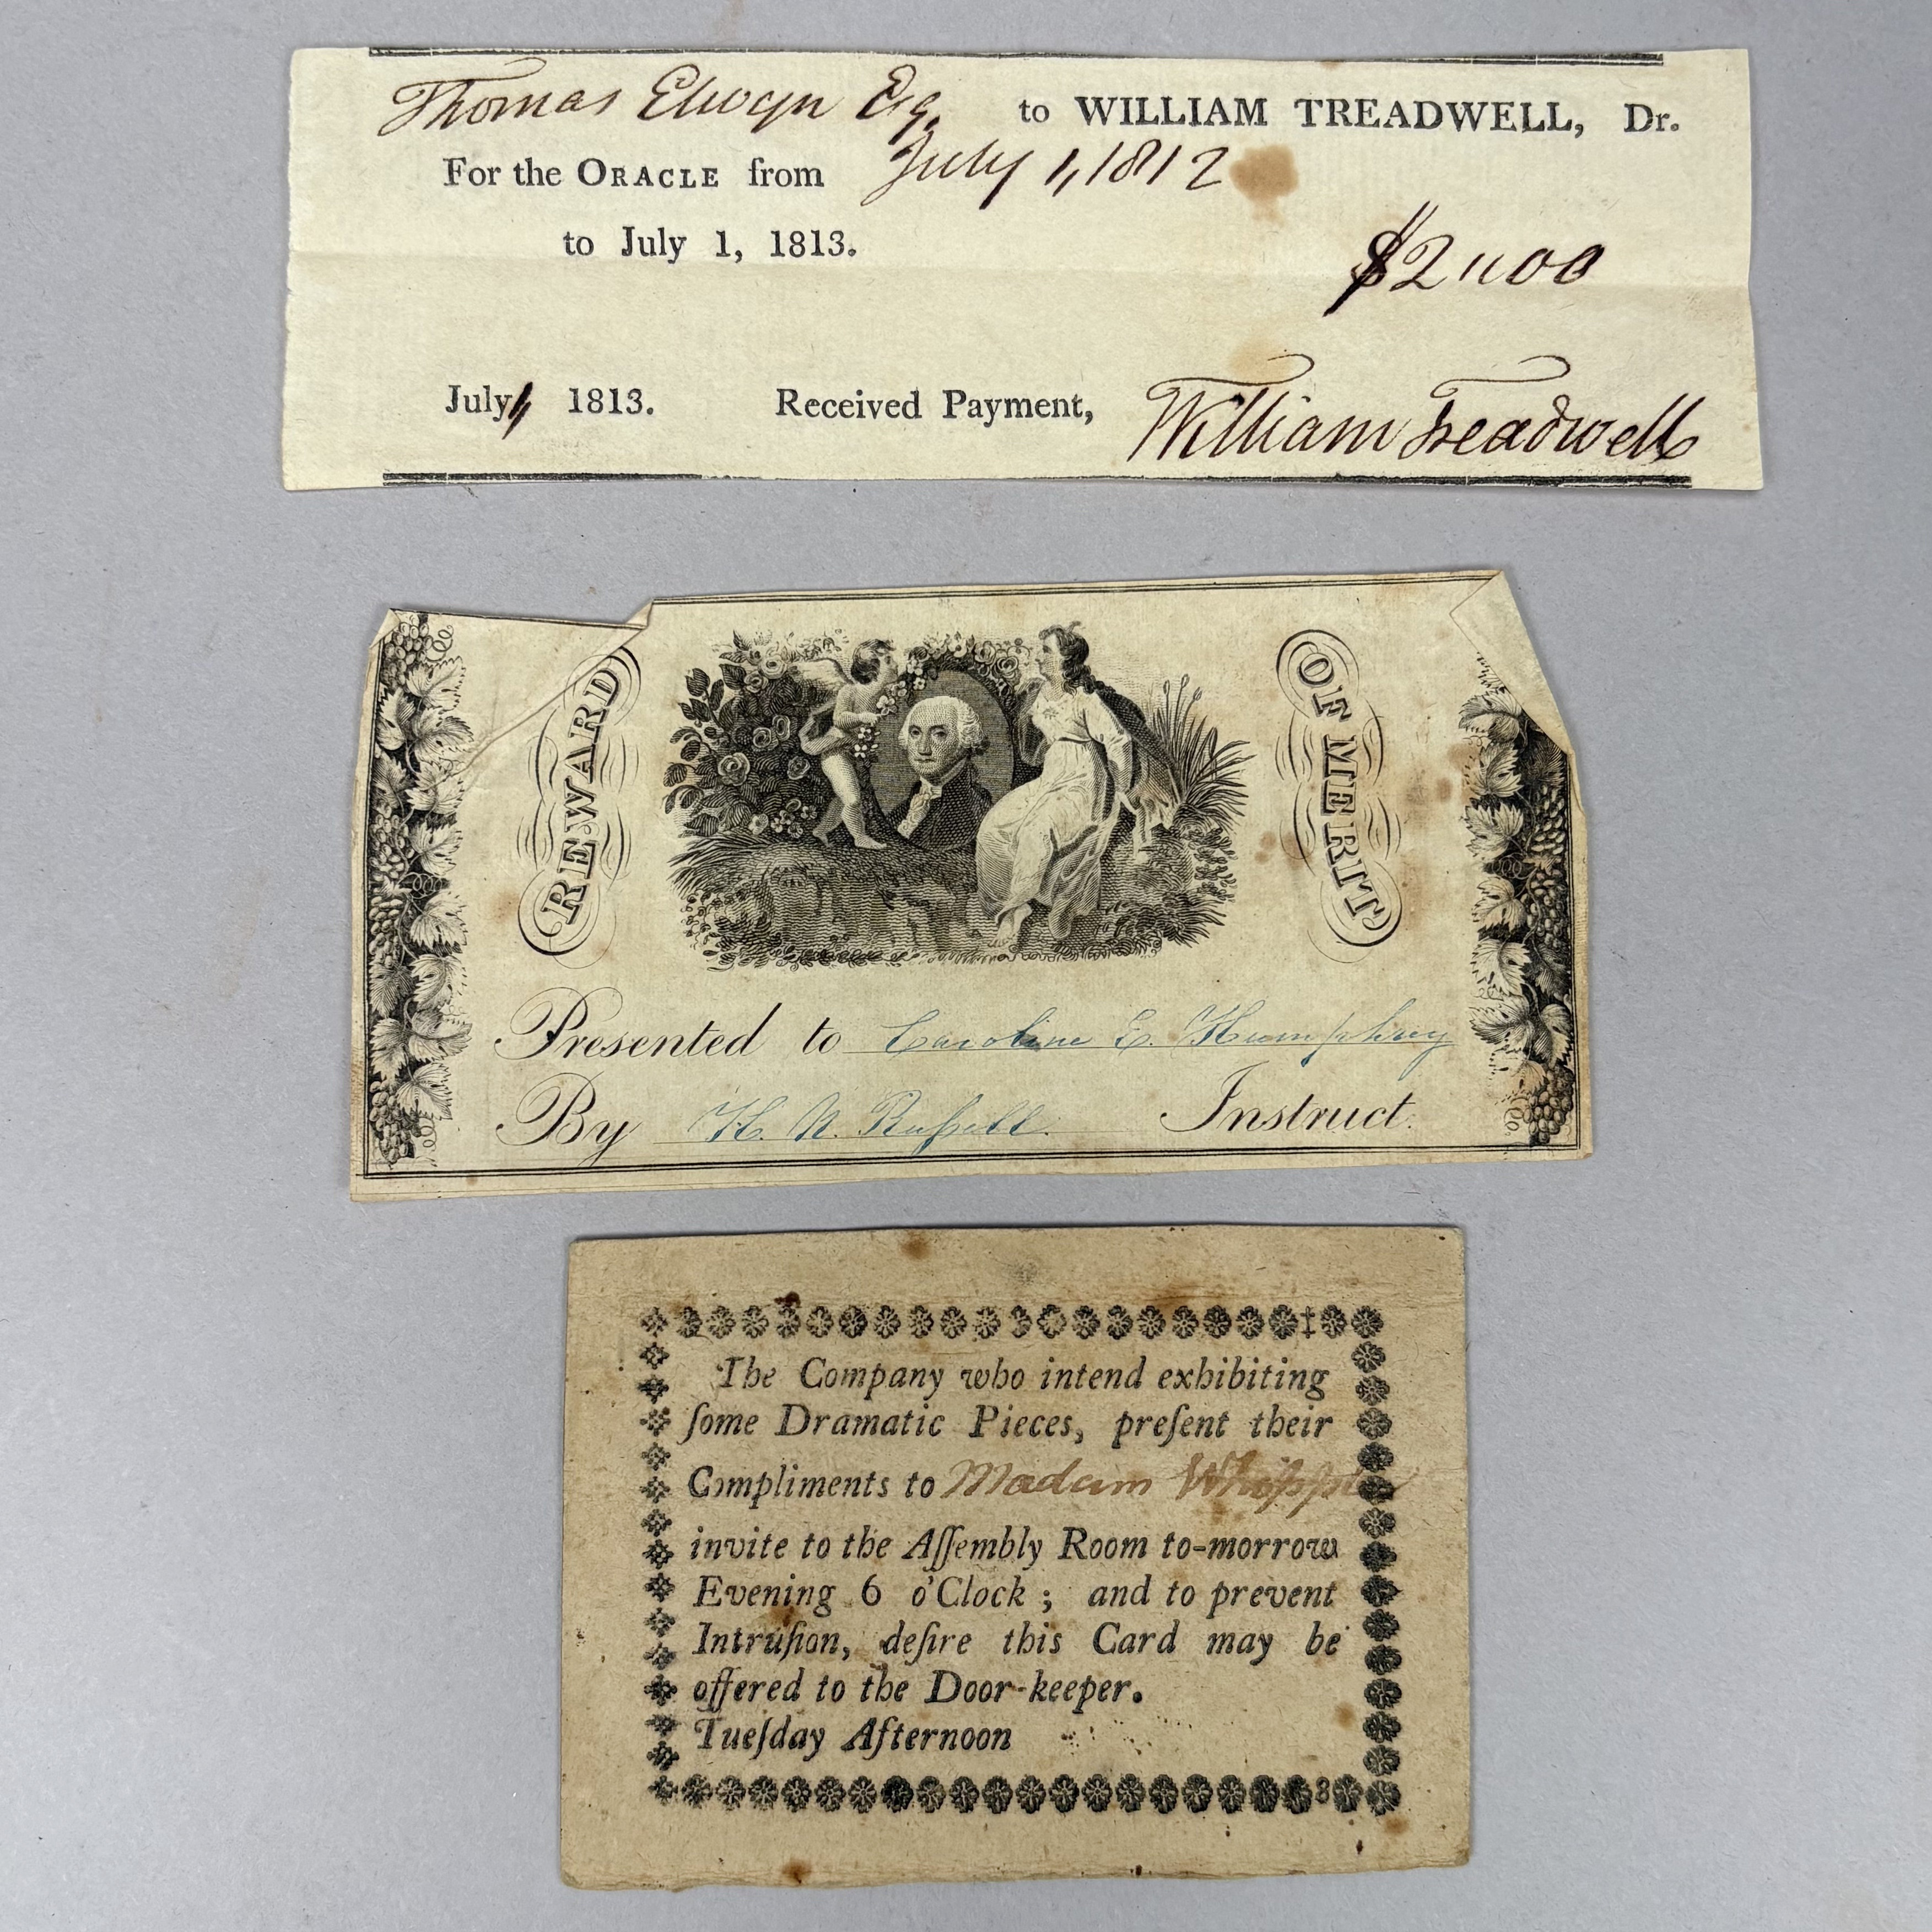 Thomas Elwyn Esq. to WILLIAM TREADWELL, Dr.
For the ORACLE from July 1, 1812
to July 1, 1813.
$2"00
July 1, 1813. Received Payment, William Treadwell
REWARD OF MERIT
Presented to Caroline E. Humphrey
By H. N. Ruſsell. Instruct.
The Company who intend exhibiting
ſome Dramatic Pieces, preſent their
Compliments to Madam Whipple
invite to the Aſſembly Room to-morrow
Evening 6 o'Clock ; and to prevent
Intruſion, deſire this Card may be
offered to the Door-keeper.
Tueſday Afternoon